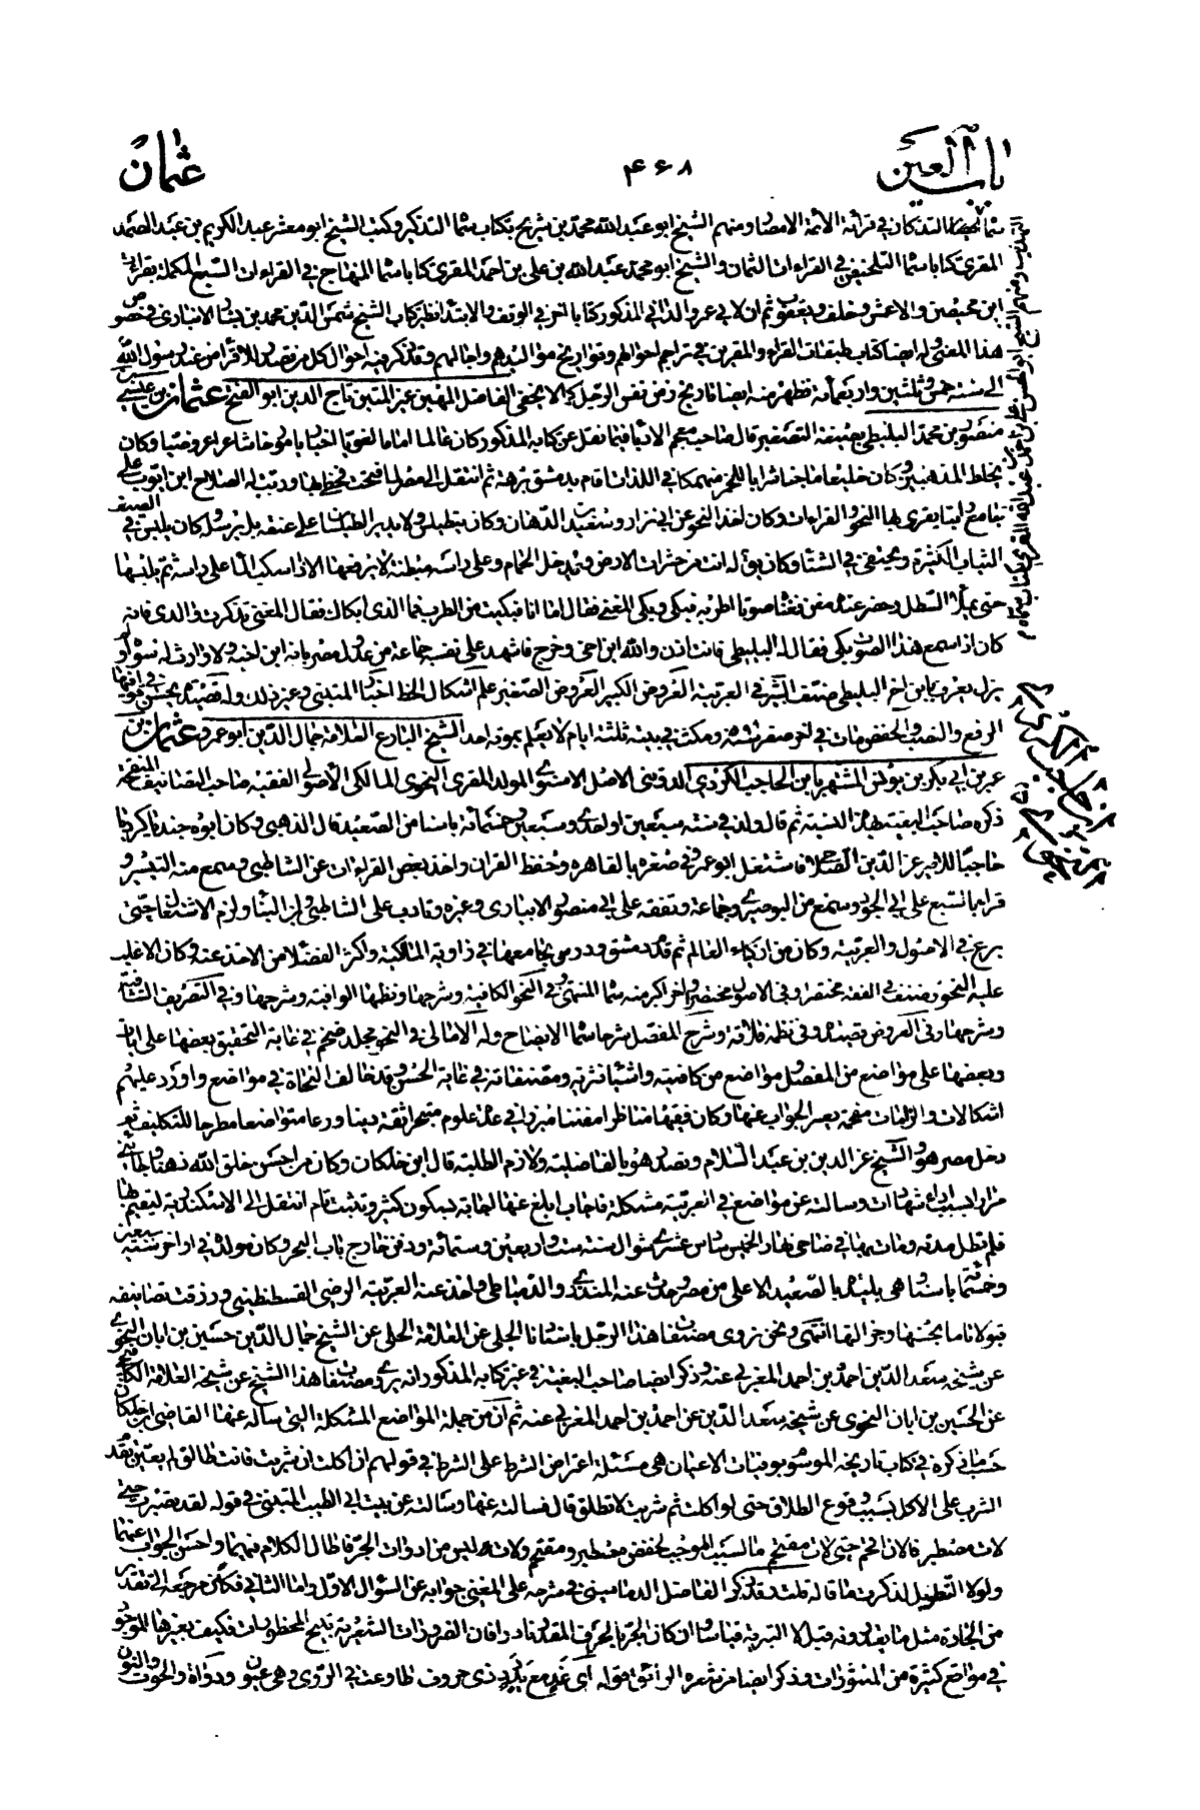 باب العين
۴۶۸
عثمان
الشيخ ابو عبد الله محمد بن شريح بكتاب سماه التذكير وكتب الشيخ ابو معشر عبد الكريم بن عبد الصمد
المقرى كتابا سماه التلخيص في القراءات الثمان والشيخ ابو محمد عبد الله بن على بن احمد المقرى كتابا سماه المنهاج في القراءات السبع المكملة بقراءة
ابن محيصن والاعمش وخلف ويعقوب ثم ان لابى عمرو الدانى المذكور كتابا اخر في الوقف والابتداء نظير كتاب الشيخ شمس الدين محمد بن بشار الانبارى في خصوص
هذا المعنى وله ايضا كتاب طبقات القراء والمقرئين في تراجم احوالهم وتواريخ مواليدهم واجالهم وقد ذكر فيه احوال كل من تصدر للاقراء من عند رسول الله
الى سنة خمس وثلثين واربعمائة فظهر منه ايضا تاريخ زمن نفس الرجل كما لا يخفى الفاضل المهين غير المتين تاج الدين ابو الفتح عثمان بن عيسى
منصور بن محمد البليطى بصيغة التصغير قال صاحب معجم الادباء فيما نقل عن كتابه المذكور كان عالما اماما لغويا اخباريا مورخا شاعرا عروضيا وكان
يخلط المذهبين وكان خليعا ماجنا شرابا للخمر منهمكا في اللذات اقام بدمشق برهة ثم انتقل الى مصر لما فتحت فحظى بها ورتب له الصلاح ابن ايوب على
جامع راتبا يقرى بها النحو والقراءات وكان اخذ النحو عن ابى نزار وسعيد بن الدهان وكان يتطيلس ولا يدير الطيلسان على عنقه بل يرسله كان يلبس في الصيف
الثياب الكثيرة ويختفى في الشتاء وكان يق له انت من حشرات الارض ويدخل الحمام وعلى راسه مبطنة لا يرفعها الا اذا سكب الماء على راسه ثم يلبسها
حتى يملأ السطل وحضر عنده مغن فغناه صوتا اطربه فبكى وبكى المغنى فقال اما انا فبكيت من الطرب فما الذى ابكاك فقال المغنى تذكرت والدى فانه
كان اذا سمع هذا الصوت بكى فقال له البليطى فانت اذن والله ابن اخى وخرج فاشهد على نفسه جماعة من عدول مصر بانه ابن اخيه ولا وارث له سواه ولم
يزل يعرف بابن اخى البليطى صنف النير في العربية العروض الكبير العروض الصغير علم اشكال الخط اخبار المتنبى وغير ذلك وله قصيدة يحسن في قوافيها
الرفع والنصب والخفض مات في اخر صفر ومكث في بيته ثلثة ايام لا يعلم بموته احد الشيخ البارع العلامة جمال الدين ابو عمرو عثمان بن
عمر بن ابى بكر بن يونس المشتهر بابن الحاجب الكردى الدوينى الاصل الاسنوى المولد المقرى النحوى المالكى الاصولى الفقيه صاحب التصانيف المنقحة
ذكره صاحب البغية بهذه النسبة ثم قال ولد في سنة سبعين او احدى وسبعين وخمسمائة باسنا من الصعيد قال الذهبى وكان ابوه جنديا كرديا
حاجبا للامير عز الدين الصلاحى فاشتغل ابو عمرو في صغره بالقاهرة وحفظ القران واخذ بعض القراءات عن الشاطبى وسمع منه التيسير و
قرا بالسبع على ابى الجود وسمع من البوصيرى وجماعة وتفقه على ابى منصور الابيارى وغيره وتادب على الشاطبى وابن البناء ولزم الاشتغال حتى
برع في الاصول والعربية وكان من اذكياء العالم ثم قدم دمشق ودرس بجامعها في زاوية المالكية واكثر الفضلا من الاخذ عنه وكان الاغلب
عليه النحو وصنف في الفقه مختصرا وفى الاصول مختصرا واخر اكبر منه سماه المنتهى وفى النحو الكافية وشرحها ونظمها الوافية وشرحها وفى التصريف الشافية
وشرحها وفى العروض قصيدة وفى نظمه قلاقة وشرح المفصل شرحا سماه الايضاح وله الامالى في النحو مجلد ضخم في غاية التحقيق بعضها على ايات
وبعضها على مواضع من المفصل ومواضع من كافيته واشياء نثرية ومصنفاته في غاية الحسن وقد خالف النحاة في مواضع واورد عليهم
اشكالات والزامات مفحمة يعسر الجواب عنها وكان فقيها مناظرا مفتيا مبرزا في عدة علوم متبحرا ثقة دينا ورعا متواضعا مطرحا للتكليف ثم
دخل مصر هو والشيخ عز الدين بن عبد السلام وتصدر هو بالفاضلية ولازم الطلبة قال ابن خلكان وكان من احسن خلق الله ذهنا وجاءنى
مرارا بسبب اداء شهادات وسالته عن مواضع في العربية مشكلة فاجاب ابلغ عنها اجابة بسكون كثير وتثبت تام انتقل الى الاسكندرية ليقيم بها
فلم تطل مدته ومات بها في ضاحى نهار الخميس سادس عشرى شوال سنة ست واربعين وستمائة ودفن خارج باب البحر وكان مولده في اواخر سنة سبعين
وخمسمائة باسنا وهى بليدة بالصعيد الاعلى من مصر حدث عنه المنذرى والدمياطى واخذ عنه العربية الرضى القسطنطينى ورزقت تصانيفه
قبولا تاما بحسنها وجزالتها انتهى ونحن نروى مصنفات هذا الرجل باسنادنا الجلى عن العلامة الحلى عن الشيخ جمال الدين حسين بن ابان النحوى
عن شيخه سعد الدين احمد بن احمد المغربى عنه وذكر ايضا صاحب البغية في غير كتابه المذكور انه يروى مصنفات هذا الشيخ عن شيخه العلامة الكافيجى
عن الحسين بن ابان النحوى عن شيخه سعد الدين عن احمد بن احمد المغربى عنه ثم ان من جملة المواضع المشكلة التى ساله عنها القاضى ابن خلكان
حسب ما ذكره في كتاب تاريخه الموسوم بوفيات الاعيان هى مسئلة اعتراض الشرط على الشرط في قولهم ان اكلت ان شربت فانت طالق لم يتعين تقديم
الشرب على الاكل بسبب وقوع الطلاق حتى لو اكلت ثم شربت لا تطلق قال فسالته عنها وسالته عن بيت ابى الطيب المتنبى في قوله لقد تصبرت حتى
لات مصطبر فالان اقحم حتى لات مقتحم ما السبب الموجب لخفض مصطبر ومقتحم ولات ليس من ادوات الجر فاطال الكلام فيهما واحسن الجواب عنهما
ولولا التطويل لذكرت ما قاله قلت وقد ذكر الفاضل الدمامينى في شرحه على المغنى جوابه عن السؤال الاول واما الثانى فكأن مرجعه الى تقدير
في مواضع كثيرة من المنثورات وذكر ايضا من شعره الرائق قوله اى غد مع يد دد ذى حروف طاوعت في الروى وهى عيون ودواة والحوت والنون